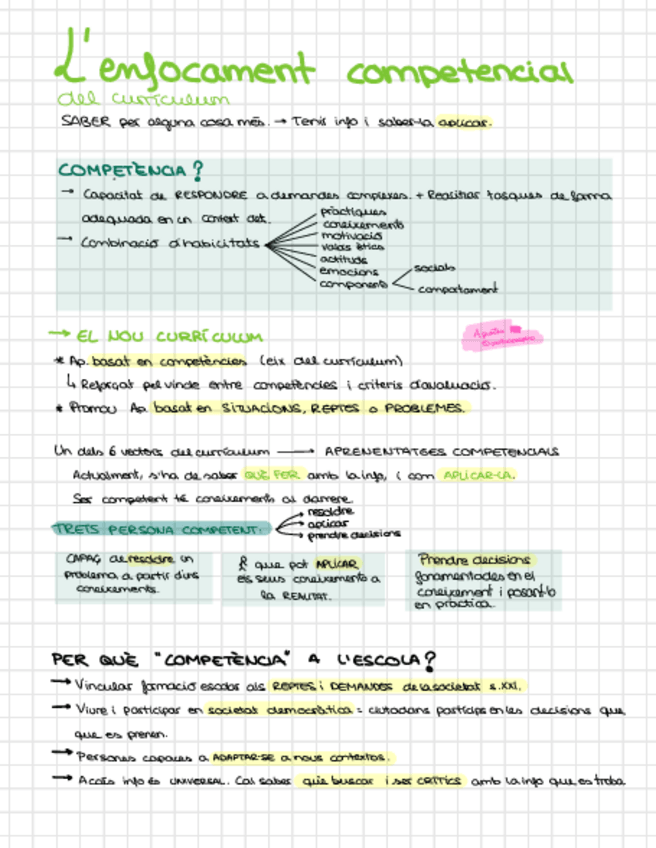 L'enfocament competencial
del currículum
SABER per alguna cosa més. → Tenir info i saber-la aplicar.
COMPETÈNCIA?
→ Capacitat de RESPONDRE a demandes complexes. + Realitzar tasques de forma
adequada en un context det.
→ Combinació d'habilitats
pràctiques
coneixements
motivació
valors ètics
actituds
emocions
components
socials
comportament
→ EL NOU CURRÍCULUM
* Ap. basat en competències (eix del currículum)
↳ Reforçat pel vincle entre competències i criteris d'avaluació.
* Promou Ap. basat en SITUACIONS, REPTES o PROBLEMES.
Un dels 6 vectors del currículum → APRENENTATGES COMPETENCIALS
Actualment, s'ha de saber QUÈ FER amb la info, i com APLICAR-LA.
Ser competent té coneixements al darrere.
TRETS PERSONA COMPETENT:
resoldre
aplicar
prendre decisions
CAPAÇ de resoldre un
problema a partir d'uns
coneixements.
que pot APLICAR
els seus coneixements a
la REALITAT.
Prendre decisions
fonamentades en el
coneixement i posant-lo
en pràctica.
PER QUÈ "COMPETÈNCIA" A L'ESCOLA?
→ Vincular formació escolar als REPTES i DEMANDES de la societat s. XXI.
→ Viure i participar en societat democràtica = ciutadans partícips en les decisions que
que es prenen.
→ Persones capaces a ADAPTAR-SE a nous contextos.
→ Accés info és UNIVERSAL. Cal saber què buscar i ser CRÍTICS amb la info que es troba